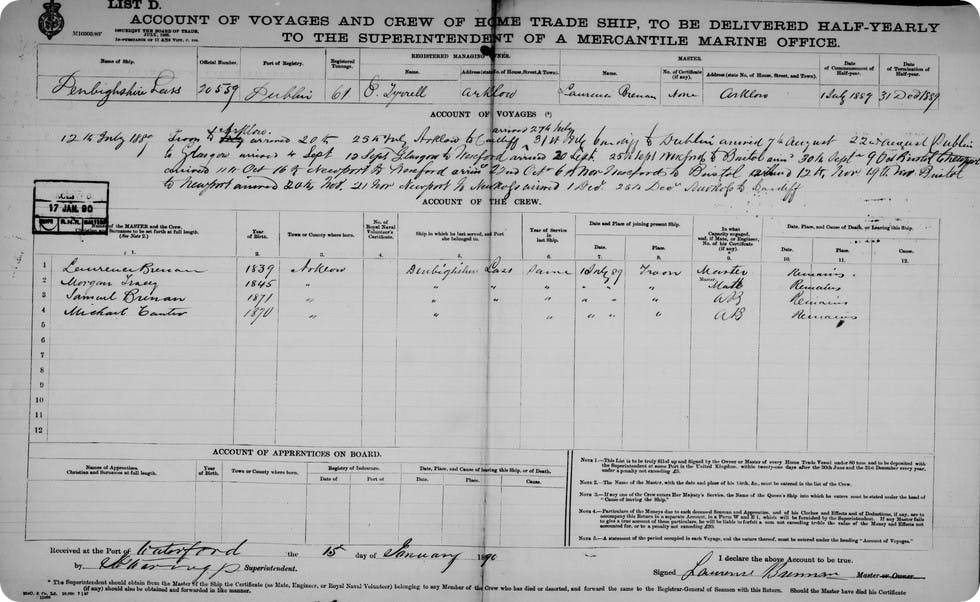 LIST D.
ACCOUNT OF VOYAGES AND CREW OF HOME TRADE SHIP, TO BE DELIVERED HALF-YEARLY
TO THE SUPERINTENDENT OF A MERCANTILE MARINE OFFICE.
ISSUED BY THE BOARD OF TRADE,
REGISTERED MANAGING OWNER.
MASTER.
Name of Ship. Official Number. Port of Registry. Registered Tonnage. Name. Address (state No. of House, Street, & Town). Name. No. of Certificate (if any). Address (state No. of House, Street, and Town). Date of Commencement of Half-year. Date of Termination of Half-year.
Denbighshire Lass 20539 Dublin 61 Tyrrell Arklow Laurence Brenan None Arklow 1 July 1889 31 Dec 1889
ACCOUNT OF VOYAGES
12th July 1889 Troon to Arklow arrived 20th 25th July Arklow to Cardiff arrived 27th July 31st July Cardiff to Dublin arrived 7th August 22nd August Dublin
to Glasgow arrived 4 Sept 12 Sept Glasgow to Wexford arrived 20 Sept 25th Sept Wexford to Bristol 30th Sept 9 Oct Bristol to Newport
arrived 11th Oct 16th Newport to Wexford 22nd Oct 6th Nov Wexford to Bristol arrived 12th Nov 19th Nov Bristol
to Newport arrived 20th Nov. 21 Nov Newport to arrived 1 Dec. 25th Dec to Cardiff
17 JAN. 90
ACCOUNT OF THE CREW.
Name of the MASTER and the Crew. Christian and Surnames to be set forth at full length. (See Note 2.) Year of Birth. Town or County where born. No. of Royal Naval Volunteer's Certificate. Ship in which he last served, and Port she belonged to. Year of Service in last Ship. Date and Place of joining present Ship. In what Capacity engaged, and, if Mate, or Engineer, No. of his Certificate (if any). Date, Place, and Cause of Death, or Leaving this Ship.
Date. Place. Date. Place. Cause.
1. 2. 3. 4. 5. 6. 7. 8. 9. 10. 11. 12.
1 Laurence Brenan 1839 Arklow Denbighshire Lass Same 1 July 89 Troon Master Remains
2 Morgan Tracey 1845 " " " " " " " Mate Remains
3 Samuel Brenan 1871 " " " " " " " AB Remains
4 Michael 1870 " " " " " " " AB Remains
5
6
7
8
9
10
11
12
ACCOUNT OF APPRENTICES ON BOARD.
Names of Apprentices. Christian and Surnames at full length. Year of Birth. Town or County where born. Registry of Indenture. Date, Place, and Cause of leaving this Ship, or of Death.
Date of Port of Date. Place. Cause.
NOTE 1.—This List is to be truly filled up and Signed by the Owner or Master of every Home Trade Vessel under 80 tons and to be deposited with
the Superintendent at some Port in the United Kingdom, within twenty-one days after the 30th June and the 31st December every year,
under a penalty not exceeding £5.
NOTE 2.—The Name of the Master, with the date and place of his birth, &c., must be entered in the list of the Crew.
NOTE 3.—If any one of the Crew enters Her Majesty's Service, the Name of the Queen's Ship into which he enters must be stated under the head of
"Cause of leaving the Ship."
NOTE 4.—Particulars of the Moneys due to each deceased Seaman and Apprentice, and of his Clothes and Effects and of Deductions, if any, are to
accompany this Return in a separate Account, in a Form W and E 1, which will be furnished by the Superintendent. If any Master fails
to give a true account of these particulars, he will be liable to forfeit a sum not exceeding treble the value of the Money and Effects not
accounted for, or to a penalty not exceeding £50.
NOTE 5.—A statement of the period occupied in each Voyage, and the nature thereof, must be entered under the heading "Account of Voyages."
Received at the Port of Waterford the 15 day of January 1890 I declare the above Account to be true.
by Superintendent. Signed Laurence Brennan Master or Owner
* The Superintendent should obtain from the Master of the Ship the Certificate (as Mate, Engineer, or Royal Naval Volunteer) belonging to any Member of the Crew who has died or deserted, and forward the same to the Registrar-General of Seamen with this Return. Should the Master have died his Certificate
(if any) should also be obtained and forwarded in like manner.